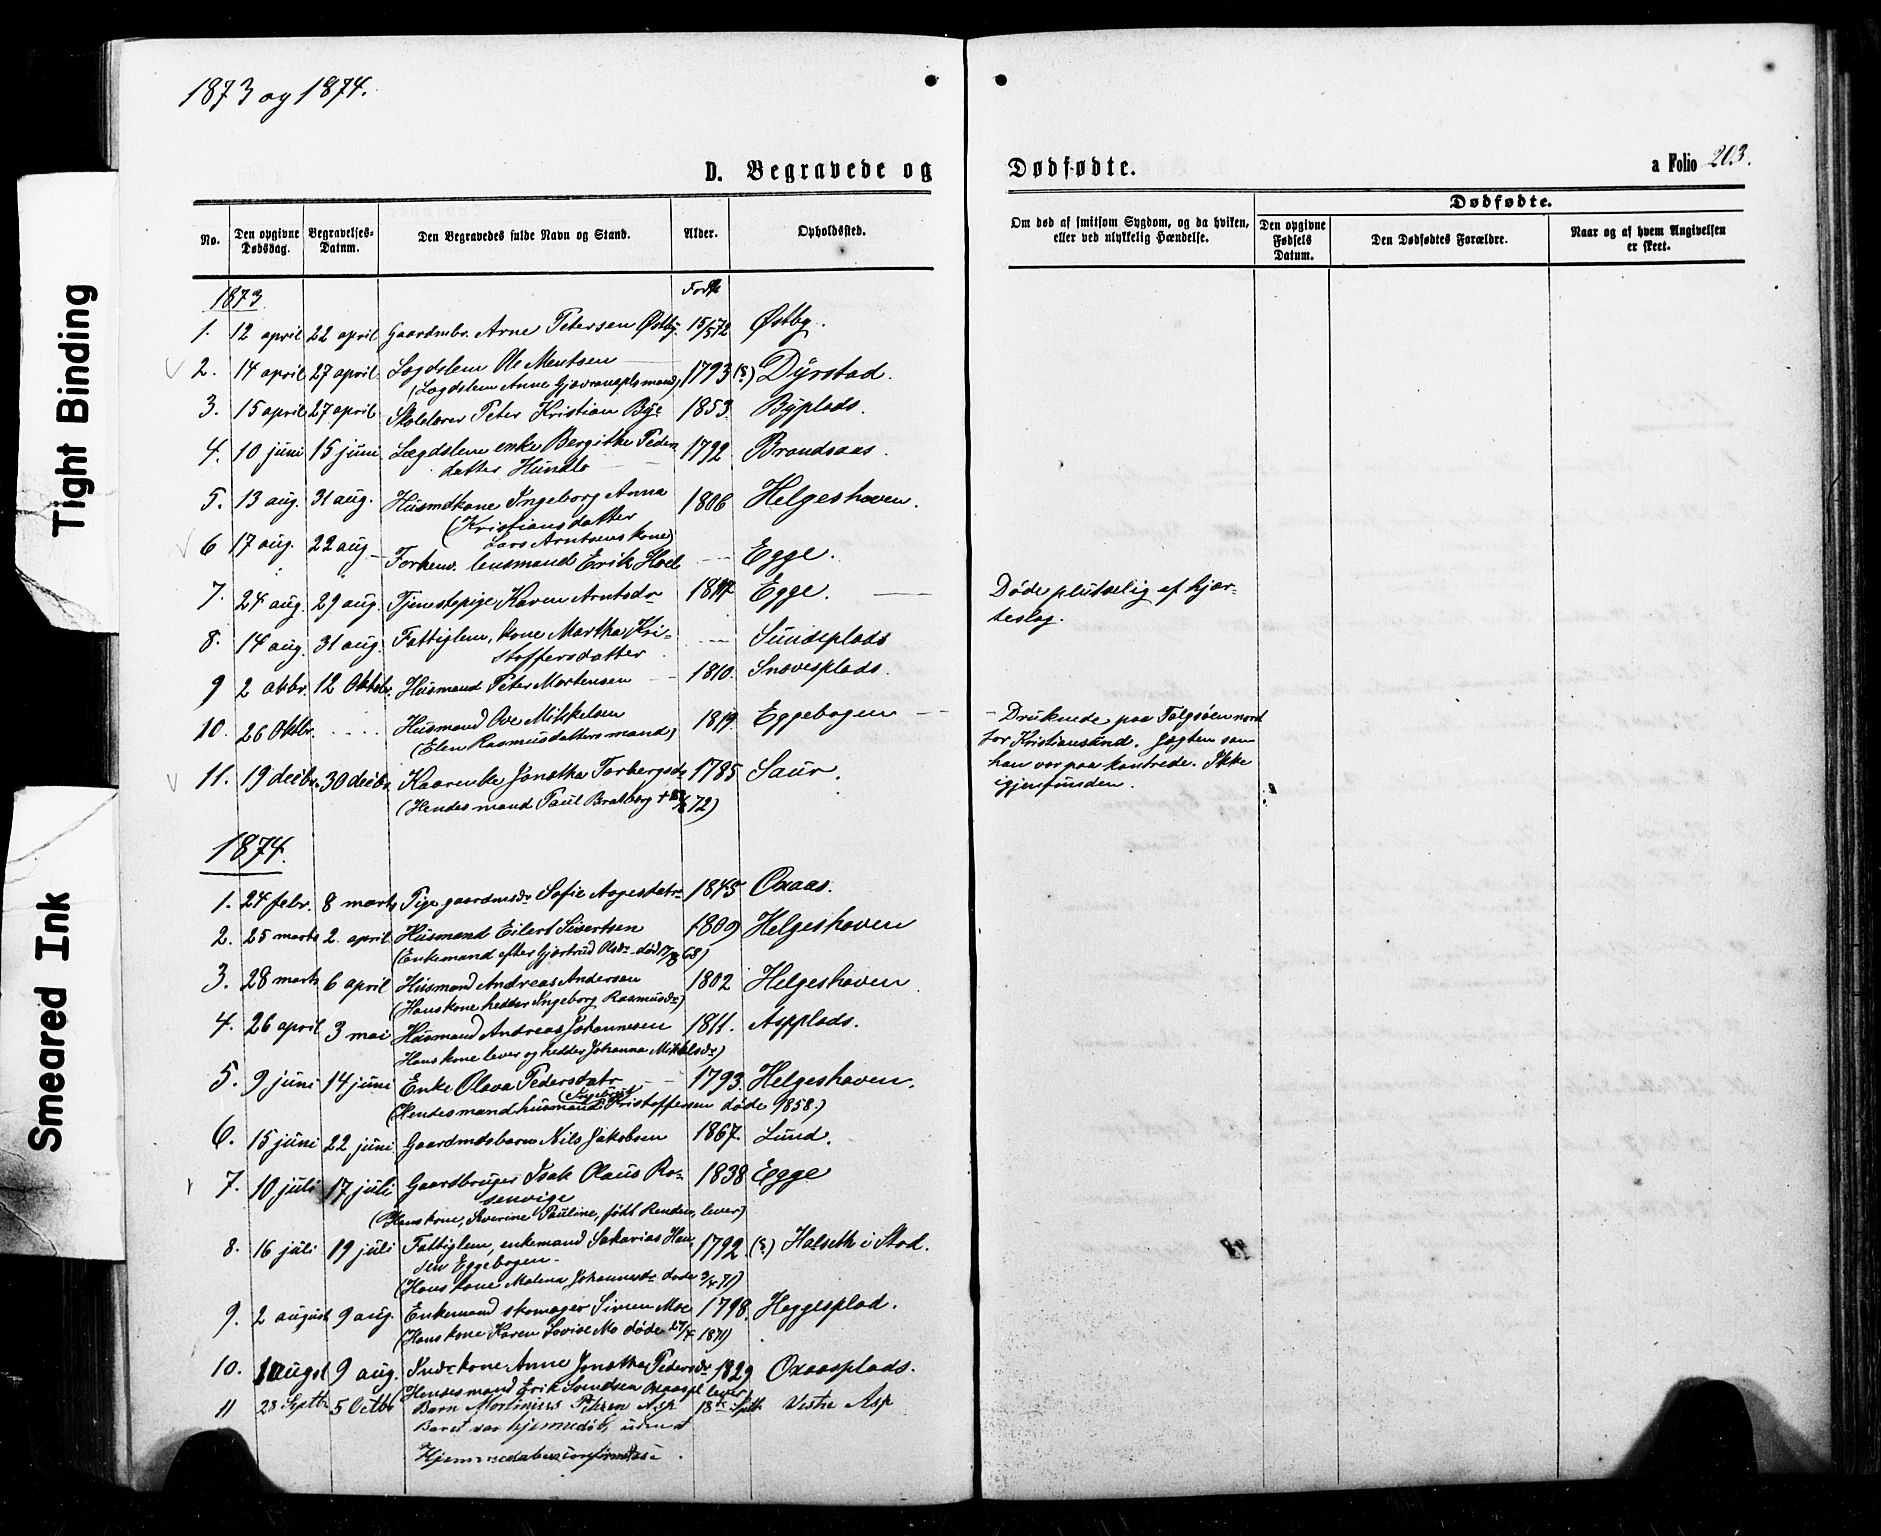 1873 og 1874.
D. Begravede og
Dødfødte.
a Folio 203.
No.
Den opgivne Dødsdag.
Begravelses-Datum.
Den Begravedes fulde Navn og Stand.
Alder.
Opholdssted.
Om død af smitsom Sygdom, og da hvilken, eller ved ulykkelig Hændelse.
Dødfødte.
Den opgivne Fødsels Datum.
Den Dødfødtes Forældre.
Naar og af hvem Angivelsen er skeet.
1873
1. 12 april 22 april Gaardmbr. Arne Petersen Østby. 15/5 72 Østby.
2. 14 april 27 april Lægdslem Ole Mentsen 1793 (S.) Dyrstad.
(Lægdslem Anne Gjævranspls mand)
3. 15 april 27 april Skolelærer Peter Kristian Bye 1853. Byplads.
4. 10 juni 15 juni Lægdslem enke Bergithe Peders 1792 Brandsaas.
datter Hundlo
5. 13 aug. 31 aug. Husmdkone Ingeborg Anna 1806 Helgeshaven.
(Kristiansdatter
Lars Arntsens kone)
6 17 aug. 22 aug. Forhenv. lensmand Erik Hoel Egge.
7. 24 aug. 29 aug. Tjenestepige Karen Arntsdr Egge. Døde plutselig af hjær-
teslag.
8. 14 aug. 31 aug. Fattiglem, kone Martha Kri- Sundeplads
stoffersdatter
9 2 oktbr. 12 Oktobr. Husmand Peter Mortensen 1810. Snavesplads.
10. 26 Oktbr. Husmand Ove Mikkelsen 1819. Eggebogen - Druknede paa Folgsøen nord
(Elen Rasmusdatters mand) for Kristiansund. Jagten som
11. 19 decbr. 30 decbr. Kaarenke Jonetha Torbergsdr 1785 Saur. han var paa kantrede. Ikke
(Hendes mand Paul Bratberg + 72) igjenfunden.
1874.
1. 24 febr. 8 marts Pige gaardmsdr Sofie Aagesdatr 1845 Oxaas.
2. 25 marts 2. april Husmand Eilert Sivertsen 1809 Helgeshaven
(Enkemand efter Gjertrud Olsdr død 68)
3. 28 marts 6 april Husmand Andreas Andersen 1802 Helgeshaven
(Hans kone hedder Ingeborg Rasmusdr)
4. 26 april 3 mai Husmand Andreas Johannesen 1811. Aspplads.
Hans kone lever og hedder Johanna Mikkelsdr)
5. 9 juni 14 juni Enke Olava Pedersdatr 1793. Helgeshaven.
(Hendes mand husmand Kristoffersen døde 1858.)
6. 15 juni 22 juni Gaardmdsbarn Nils Jakobsen 1867. Lund.
7. 10 juli 17 juli Gaardbruger Isak Olaus Ro- 1838 Egge
senvige
(Hans kone, Severine Pauline, født Renden, lever)
8. 16 juli 19 juli Fattiglem, enkemand Sakarias Han- 1792. (S.) Halseth i Stod.
sen Eggebogen.
(Hans kone Malena Johannesdr døde 71)
9. 2 august 9 aug. Enkemand skomager Simen Moe 1798. Heggesplad.
(Hans kone Karen Lovise Mo døde 27/4 1871)
10. august 9 aug. Indrkone Anne Jonetha Pedersdr 1829 Oxaasplads.
(Hendes mand Erik Svendsen Oxaaspl lever)
11 23 Septbr 5 Octbr Barn Martinius Petersen Asp 18de Septb Vestre Asp
Barnet var hjemmedøbt, uden at